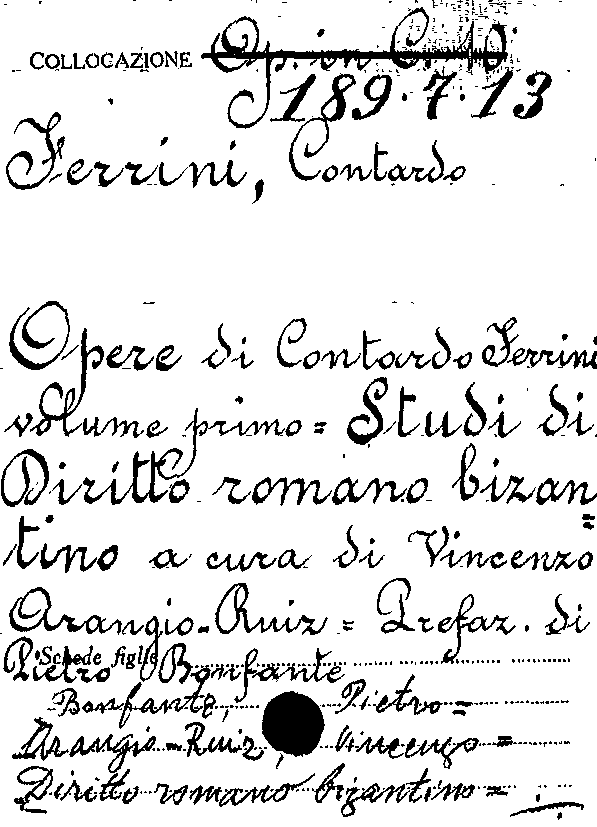 COLLOCAZIONE Op. in C. 10
189.7.13
Ferrini, Contardo
Opere di Contardo Ferrini
volume primo = Studi di
Diritto romano bizan
=
tino a cura di Vincenzo
Arangio-Ruiz = Prefaz. di
Pietro Bonfante
Schede figlie
Bonfante, Pietro =
Arangio-Ruiz, Vincenzo =
Diritto romano bizantino =